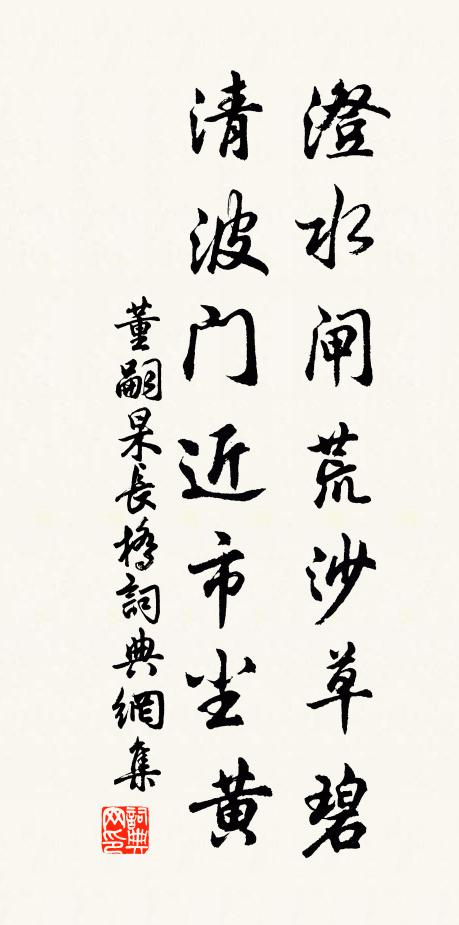 澄水闸荒沙草碧
清波门近市尘黄
董嗣杲長橋詞典網集
詞典网印